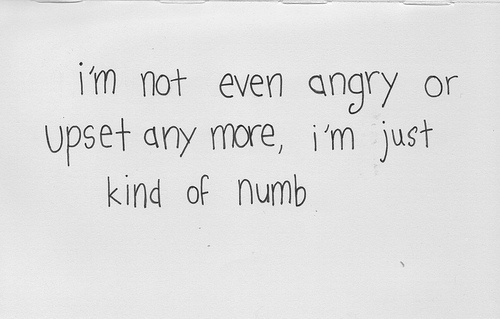 i'm not even angry or
upset any more, i'm just
kind of numb